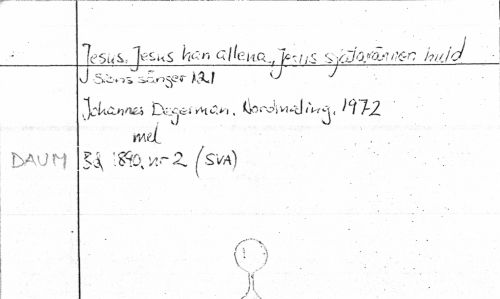 Jesus, Jesus han allena, Jesus själavännen huld
Sions sånger 121
Johannes Degerman, Nordmaling, 1972
mel
DAUM Bd 1890, nr 2 (SVA)